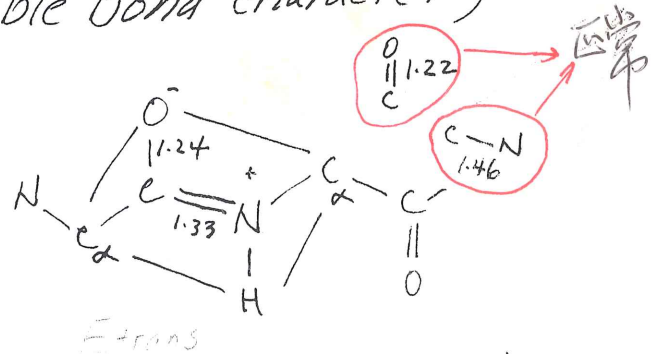 ble bond character)
O
||1.22
C
正常
C—N
1.46
O⁻
|1.24
C
1.33
N⁺
H
N
Cα
Cα
C
||
O
E trans